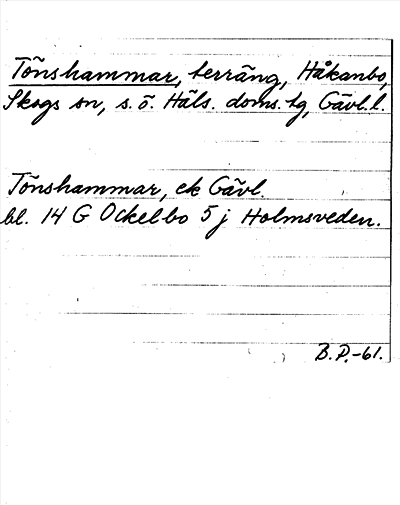 Tönshammar, terräng, Håkanbo,
Skogs sn, s. ö. Häls. doms. tg, Gävl. l.
Tönshammar, ek Gävl.
bl. 14 G Ockelbo 5 j Holmsveden.
B. P. -61.